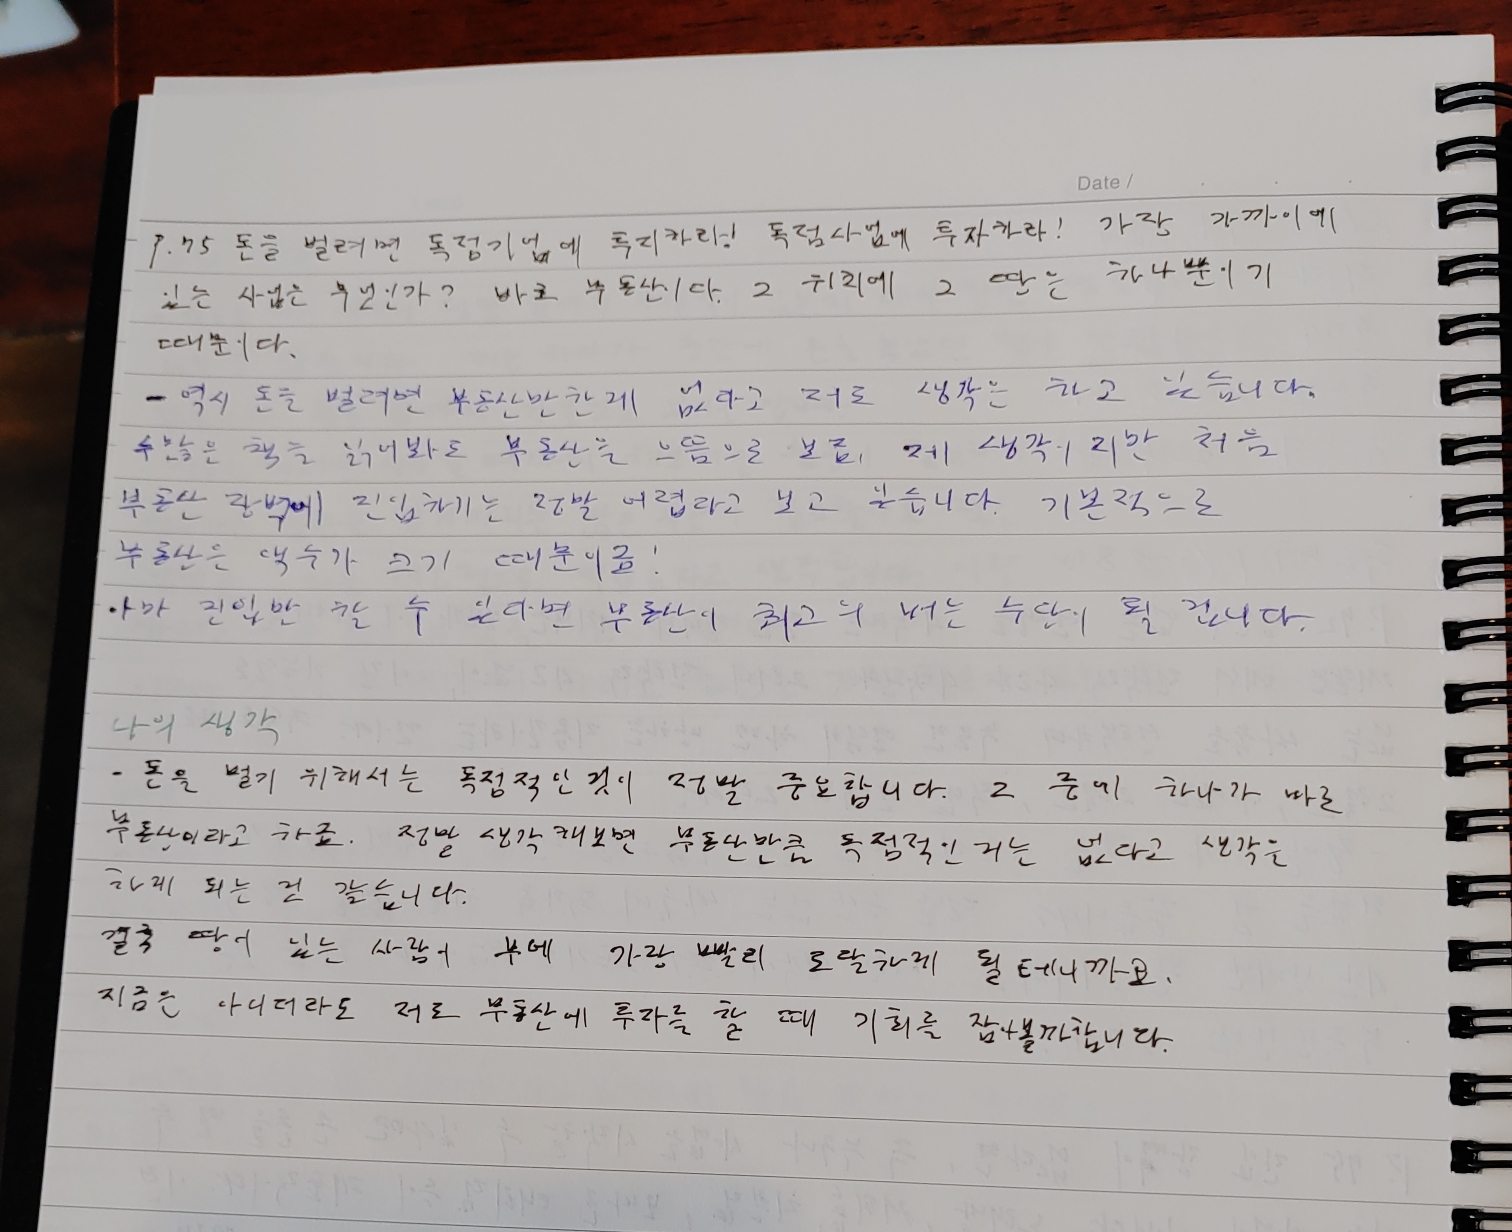 Date /
P.75 돈을 벌려면 독점기업에 투자하라! 독점사업에 투자하라! 가장 가까이에
있는 사업은 무엇인가? 바로 부동산이다. 그 위치에 그 땅은 하나뿐이기
때문이다.
- 역시 돈을 벌려면 부동산만한게 없다고 저도 생각은 하고 있습니다.
수많은 책을 읽어봐도 부동산을 으뜸으로 보죠. 제 생각이지만 처음
부동산 장벽에 진입하기는 정말 어렵다고 보고 있습니다. 기본적으로
부동산은 액수가 크기 때문이죠!
아마 진입만 할 수 있다면 부동산이 최고의 버는 수단이 될 겁니다.
나의 생각
- 돈을 벌기 위해서는 독점적인것이 정말 중요합니다. 그 중에 하나가 바로
부동산이라고 하죠. 정말 생각해보면 부동산만큼 독점적인 거는 없다고 생각을
하게 되는 것 같습니다.
결국 땅이 있는 사람이 부에 가장 빨리 도달하게 될 테니까요.
지금은 아니더라도 저도 부동산에 투자를 할 때 기회를 잡아볼까합니다.